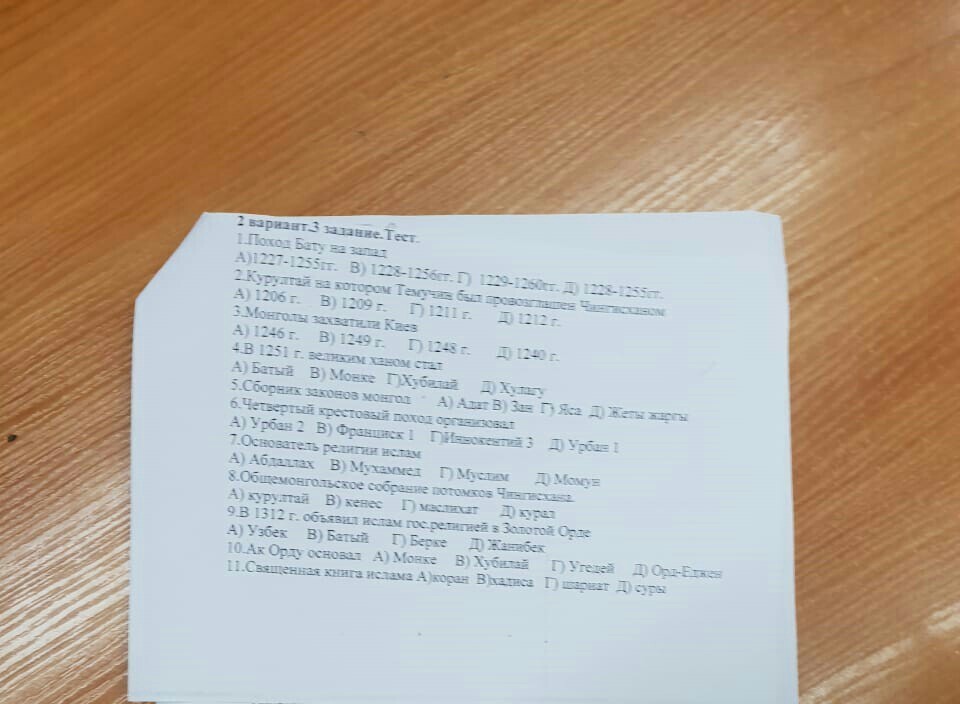 2 вариант.3 задание.Тест.
1.Поход Бату на запад
А)1227-1255гг. В) 1228-1256гг. Г) 1229-1260гг. Д) 1228-1255гг.
2.Курултай на котором Темучин был провозглашен Чингисханом
А) 1206 г. В) 1209 г. Г) 1211 г. Д) 1212 г.
3.Монголы захватили Киев
А) 1246 г. В) 1249 г. Г) 1248 г. Д) 1240 г.
4.В 1251 г. великим ханом стал
А) Батый В) Монке Г)Хубилай Д) Хулагу
5.Сборник законов монгол А) Адат В) Зан Г) Яса Д) Жеты жаргы
6.Четвертый крестовый поход организовал
А) Урбан 2 В) Франциск 1 Г)Иннокентий 3 Д) Урбан 1
7.Основатель религии ислам
А) Абдаллах В) Мухаммед Г) Муслим Д) Момун
8.Общемонгольское собрание потомков Чингисхана.
А) курултай В) кенес Г) маслихат Д) курал
9.В 1312 г. объявил ислам гос.религией в Золотой Орде
А) Узбек В) Батый Г) Берке Д) Жанибек
10.Ак Орду основал А) Монке В) Хубилай Г) Угедей Д) Орд-Еджен
11.Священная книга ислама А)коран В)хадиса Г) шариат Д) суры